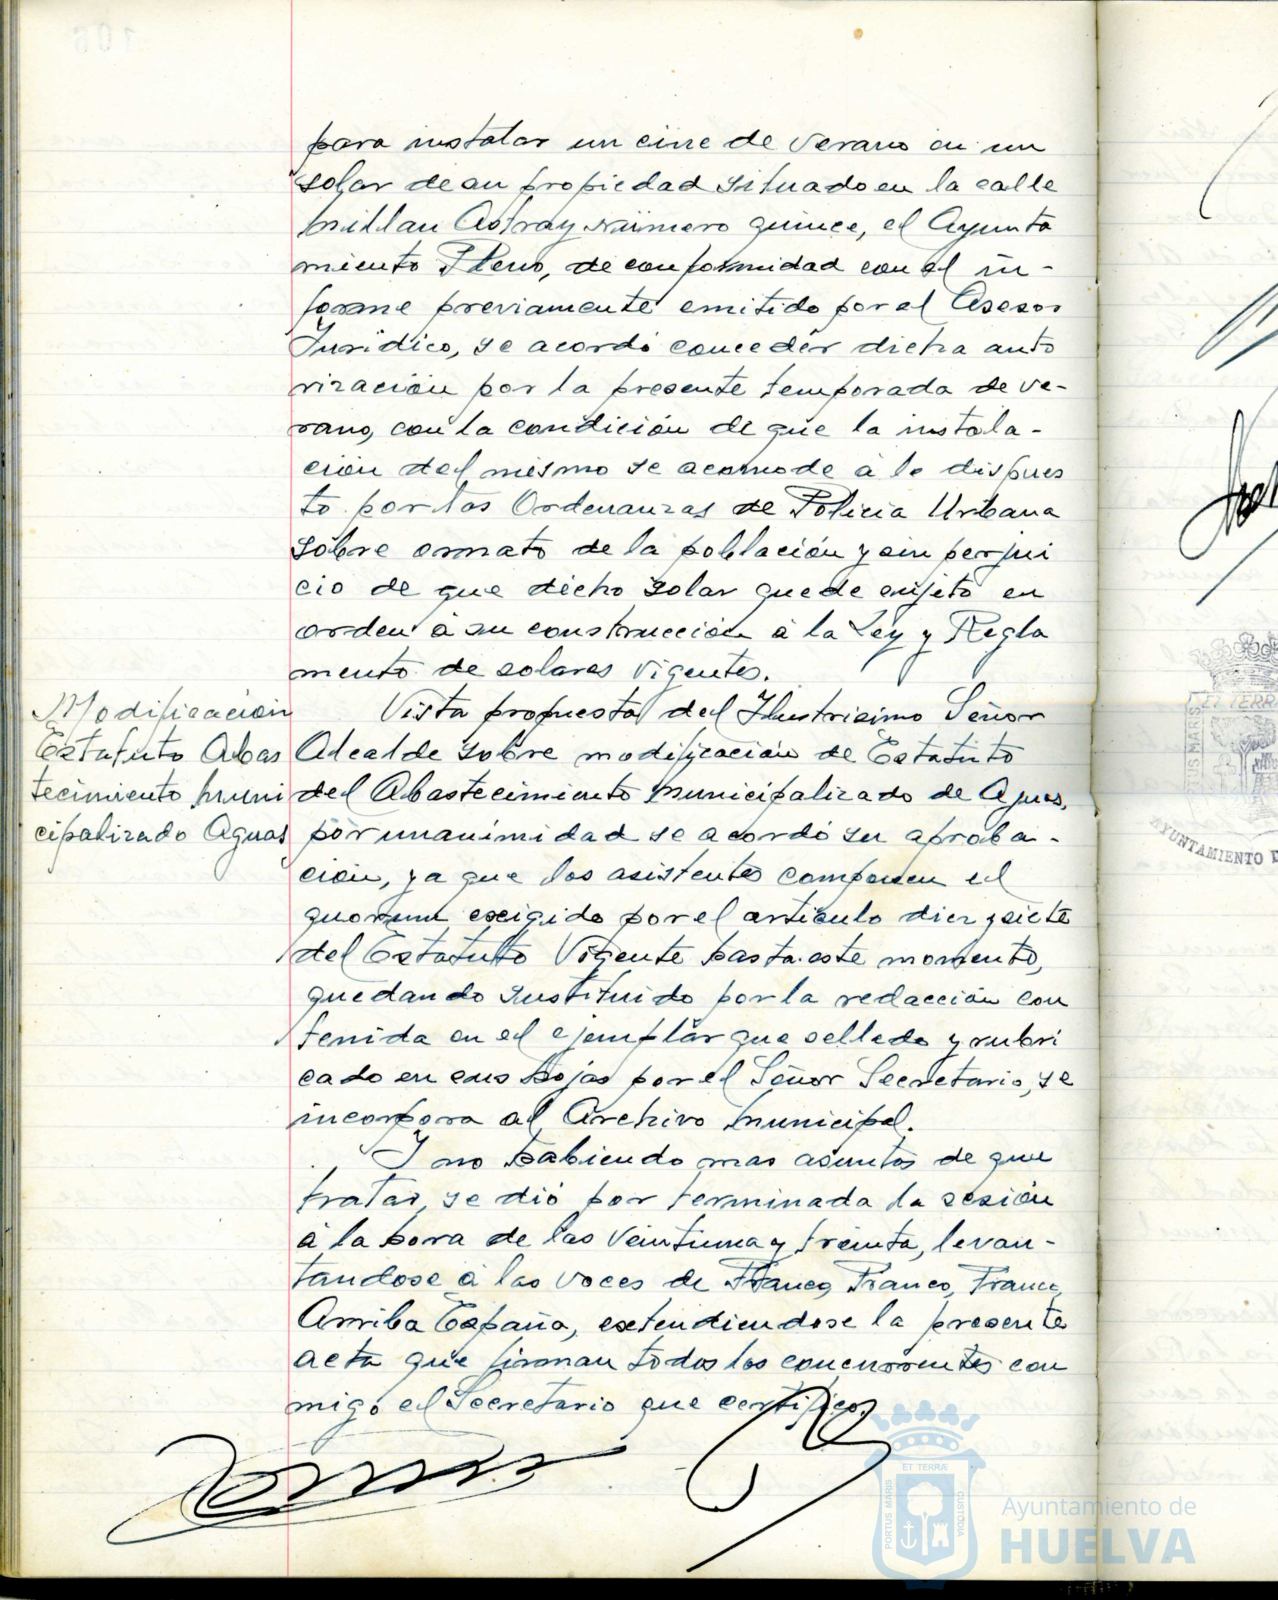 para instalar un cine de verano en un
solar de su propiedad situado en la calle
Millan Astray número quince, el Ayunta
miento Pleno, de conformidad con el in-
forme previamente emitido por el Asesor
Jurídico, se acordó conceder dicha auto
rización por la presente temporada de ve-
rano, con la condición de que la instala-
ción del mismo se acomode á lo dispues
to por las Ordenanzas de Policía Urbana
sobre ornato de la población y sin perjui
cio de que dicho solar quede sujeto en
orden á su construcción á la Ley y Regla
mento de solares vigentes.
Modificación
Estatuto Abas
tecimiento Muni
cipalizado Aguas
Vista propuesta del Ilustrisimo Señor
Alcalde sobre modificación de Estatuto
del Abastecimiento Municipalizado de Aguas,
por unanimidad se acordó su aproba-
ción, ya que los asistentes componen el
quorum exigido por el articulo diez y siete
del Estatuto Vigente hasta este momento,
quedando sustituido por la redacción con
tenida en el ejemplar que sellado y rubri
cado en sus hojas por el Señor Secretario, se
incorpora al Archivo Municipal.
Y no habiendo mas asuntos de que
tratar, se dió por terminada la sesión
á la hora de las veintiuna y treinta, levan-
tandose á las voces de Franco, Franco, Franco,
Arriba España, extendiendose la presente
acta que firman todos los concurrentes con
migo el Secretario que certifico.
PORTUS MARIS
ET TERRÆ
CUSTODIA
Ayuntamiento de
HUELVA
ET TERR
TUS MARIS
AYUNTAMIENTO D